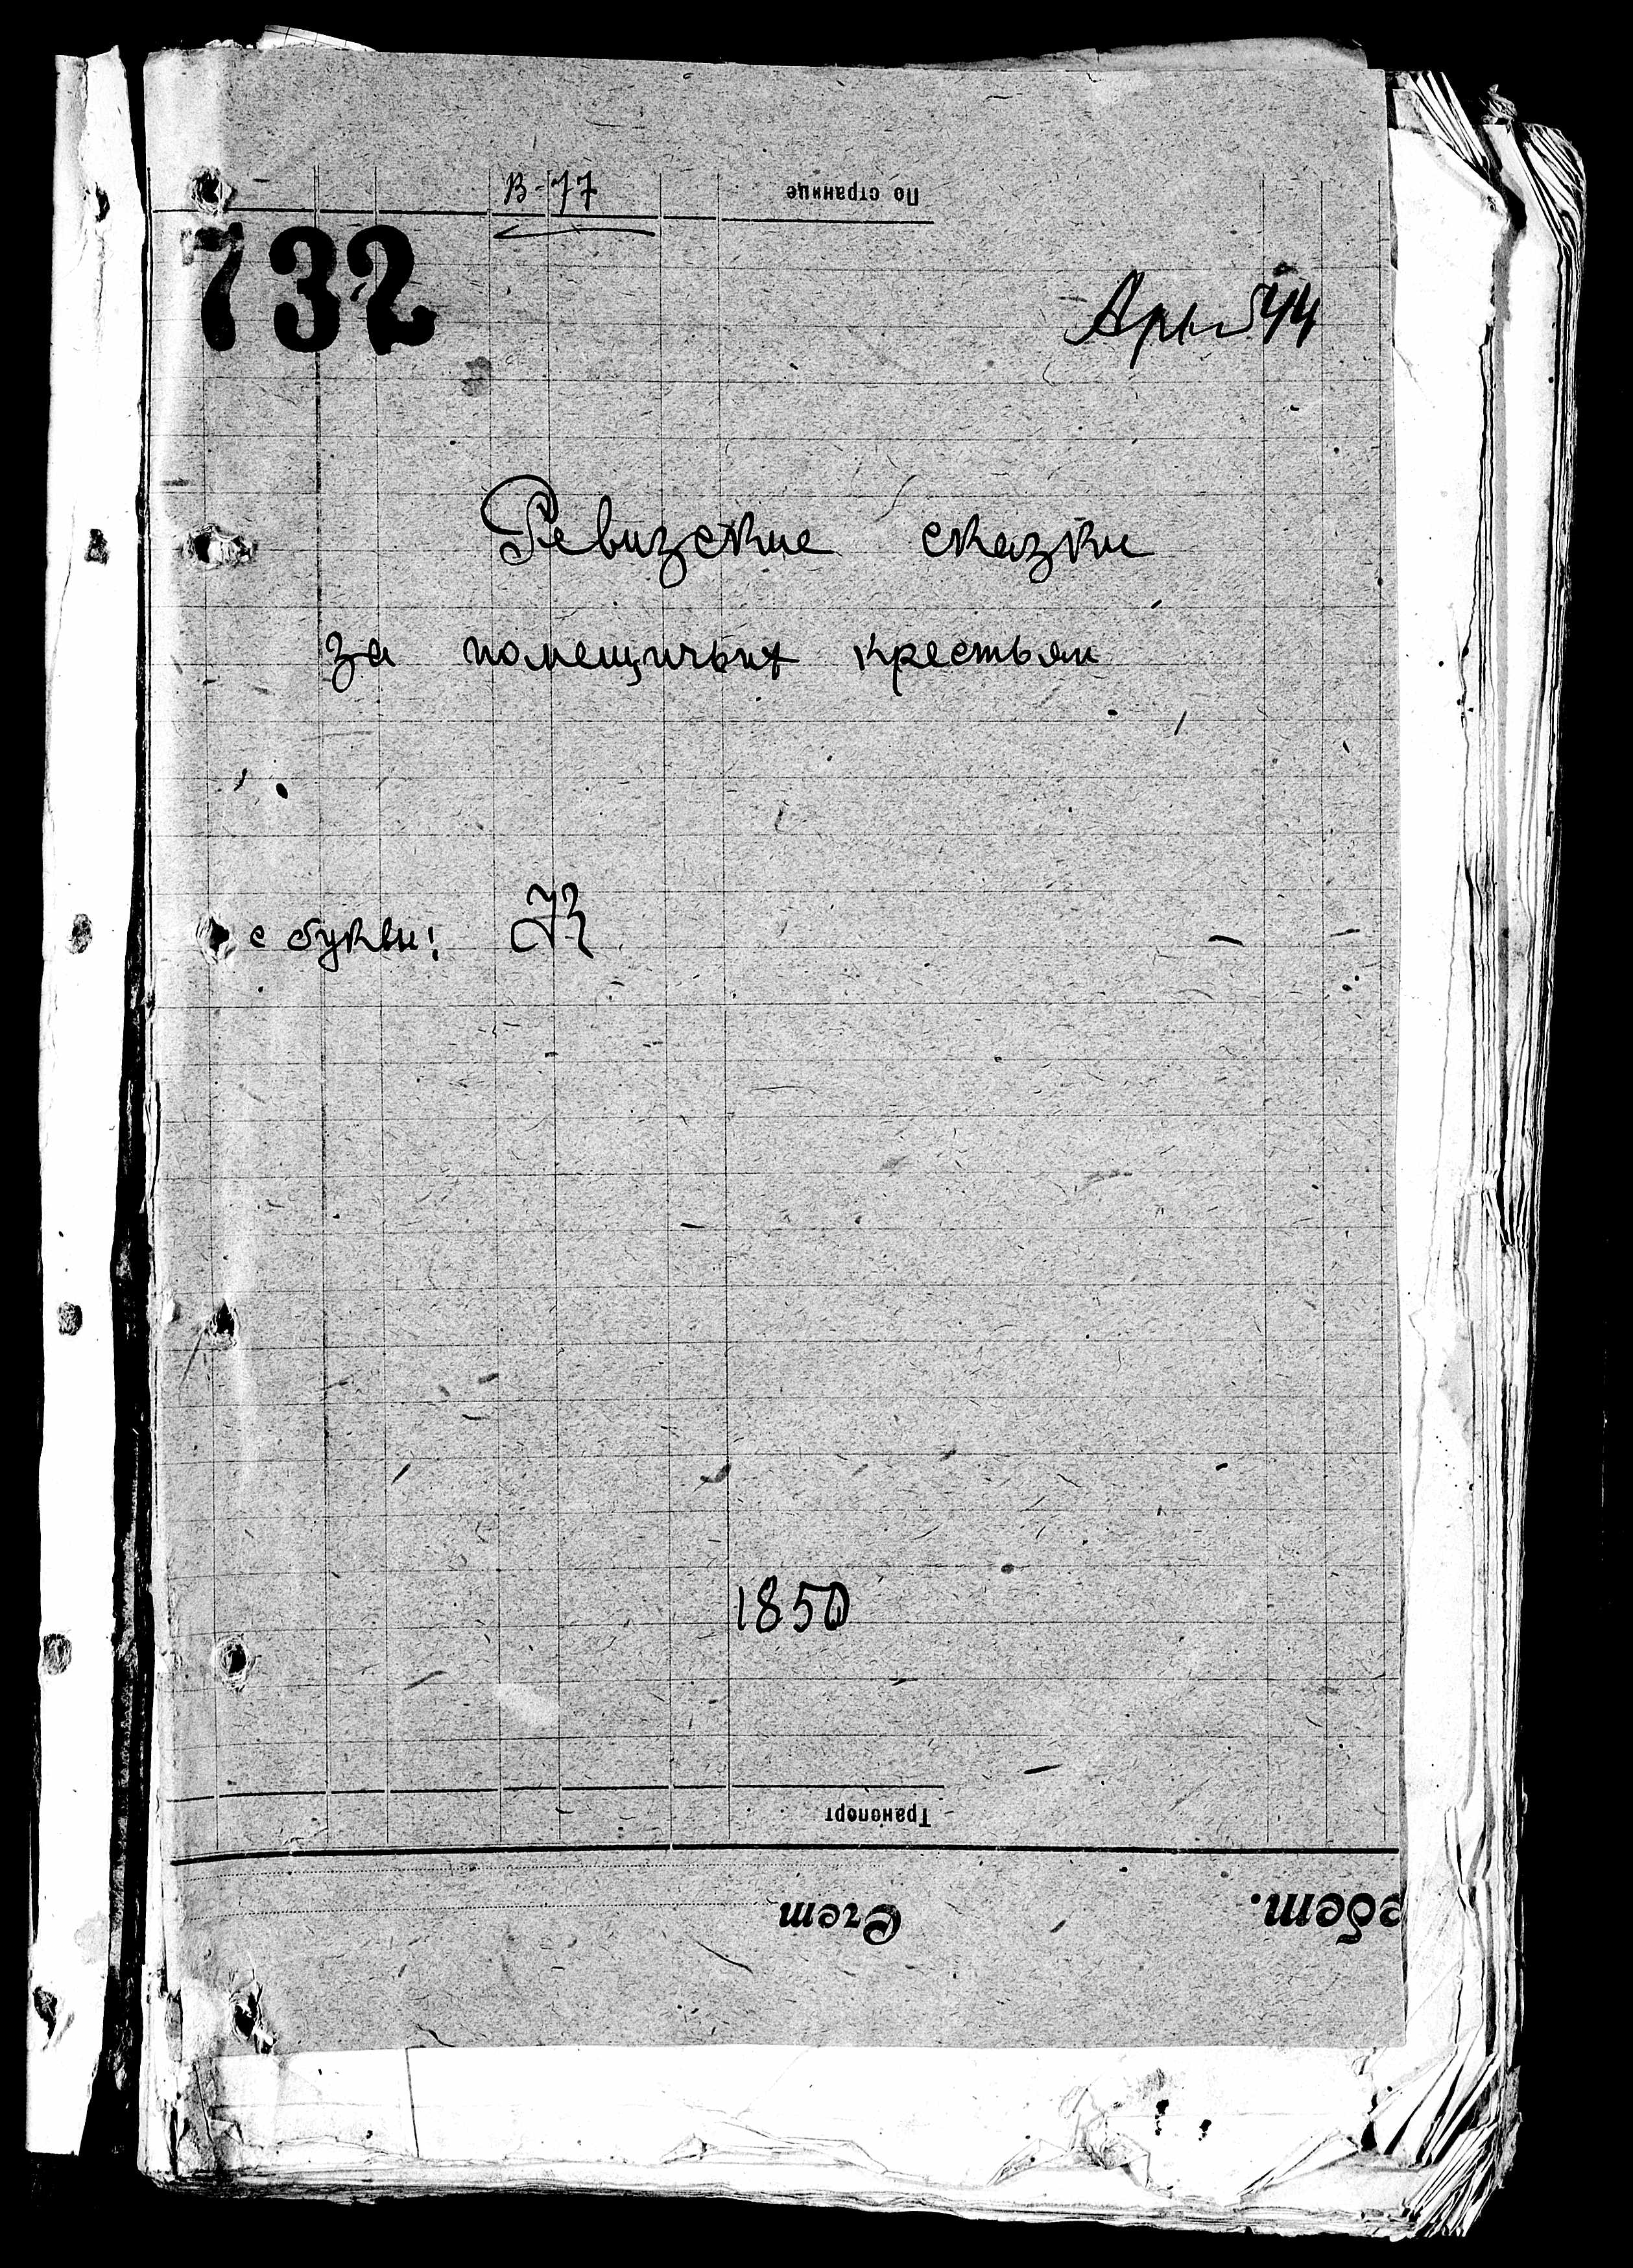 В-77
По странице
732
Ревизские сказки
за помещичьих крестьян
с буквы: К
1850
Транспорт
Счет
ебет.